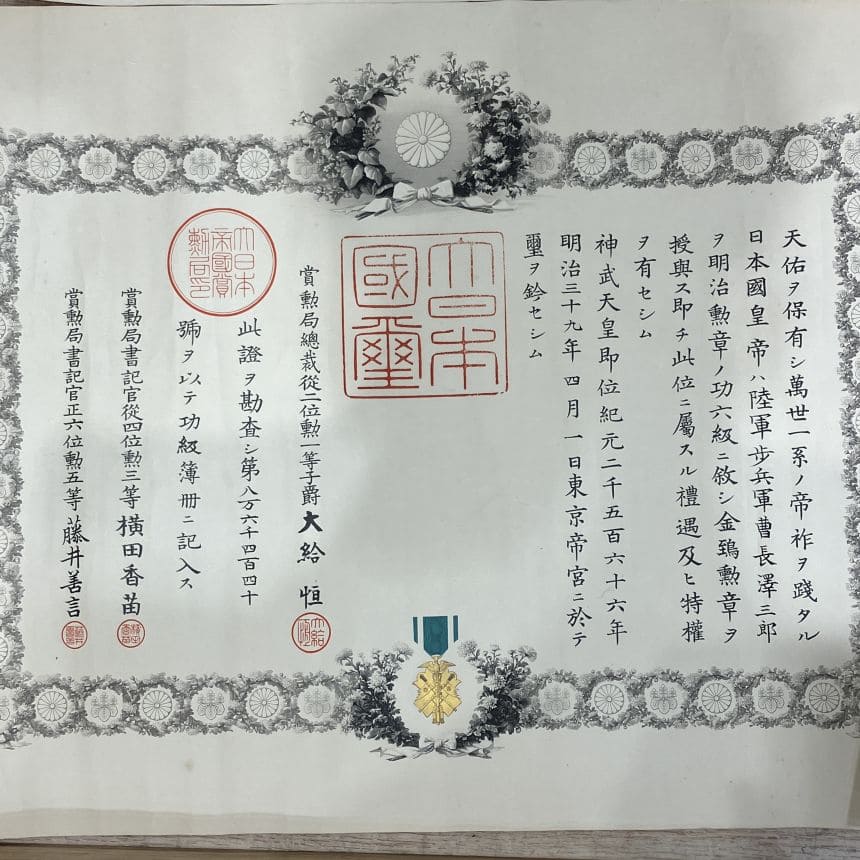 天佑ヲ保有シ萬世一系ノ帝祚ヲ踐タル
日本國皇帝ハ陸軍步兵軍曹長澤三郎
ヲ明治勲章ノ功六級ニ敘シ金鵄勲章ヲ
授與ス即チ此位ニ屬スル禮遇及ヒ特權
ヲ有セシム
神武天皇即位紀元二千五百六十六年
明治三十九年四月一日東京帝宮ニ於テ
璽ヲ鈐セシム
大日本
國璽
賞勲局總裁從二位勲一等子爵大給恒
大給恒
大日本
帝國賞
勲局印
此證ヲ勘査シ第八万六千四百四十
號ヲ以テ功級簿册ニ記入ス
賞勲局書記官從四位勲三等橫田香苗
賞勲局書記官正六位勲五等藤井善言